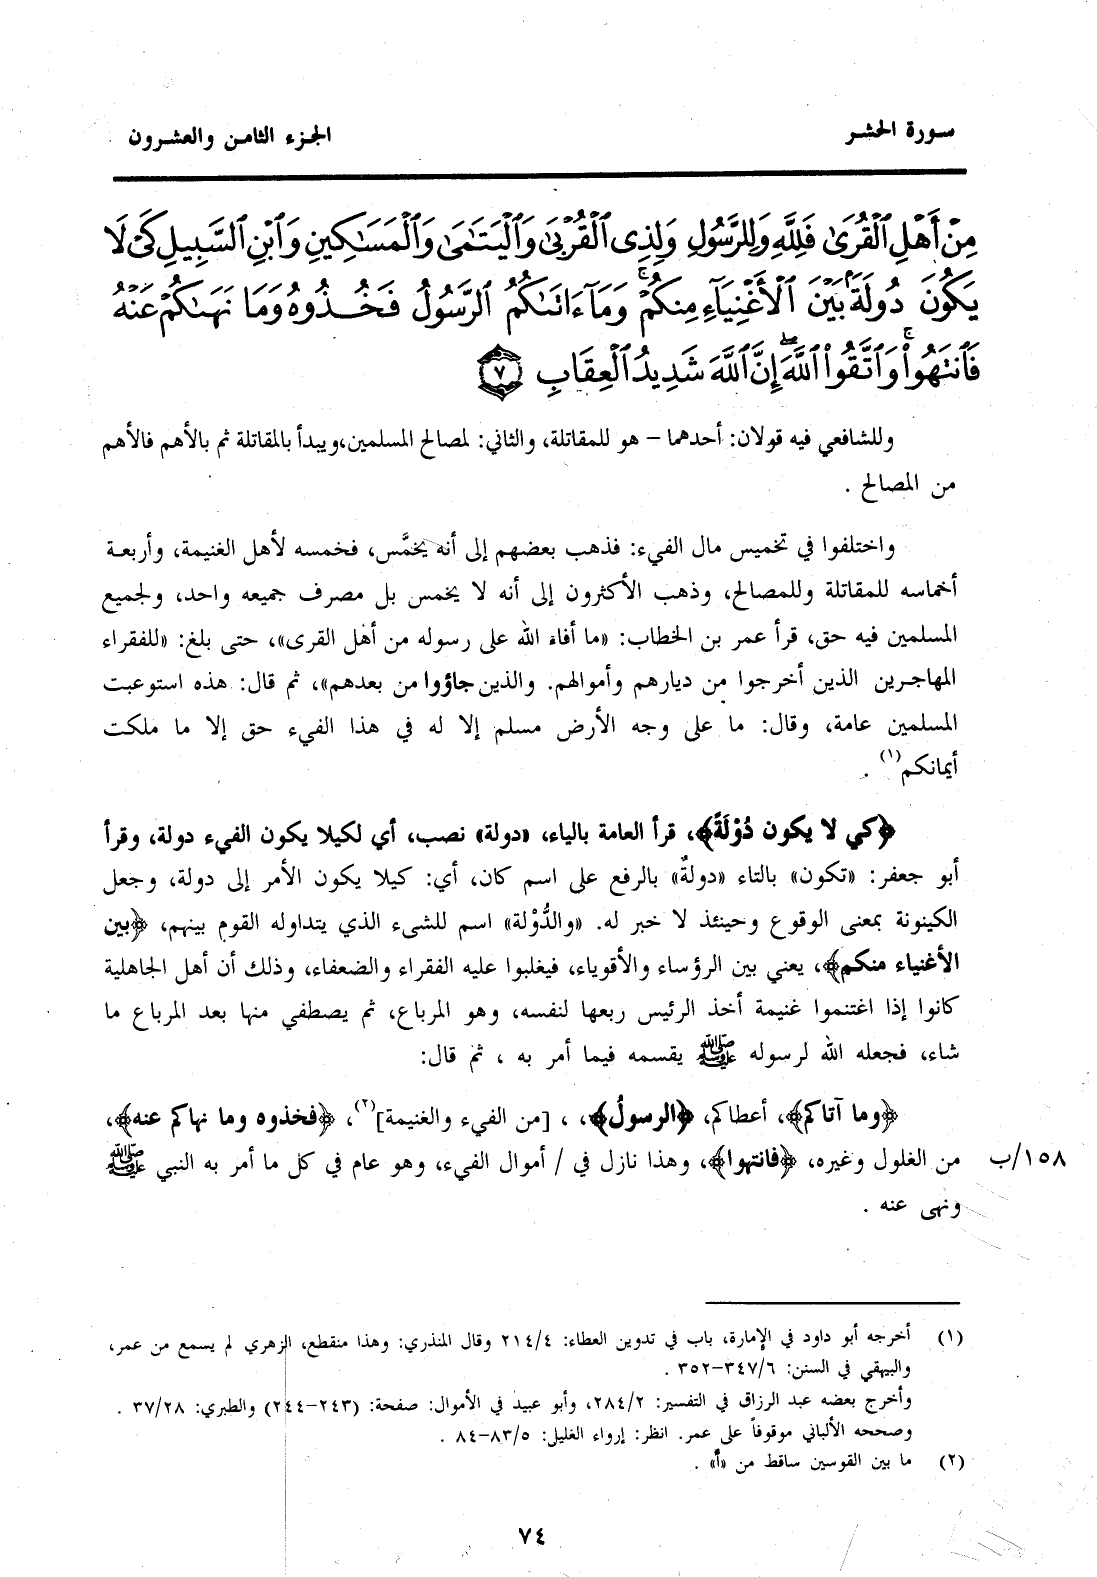 سورة الحشر
الجزء الثامن والعشرون
مِنْ أَهْلِ ٱلْقُرَىٰ فَلِلَّهِ وَلِلرَّسُولِ وَلِذِى ٱلْقُرْبَىٰ وَٱلْيَتَٰمَىٰ وَٱلْمَسَٰكِينِ وَٱبْنِ ٱلسَّبِيلِ كَىْ لَا
يَكُونَ دُولَةًۢ بَيْنَ ٱلْأَغْنِيَآءِ مِنكُمْ ۚ وَمَآ ءَاتَىٰكُمُ ٱلرَّسُولُ فَخُذُوهُ وَمَا نَهَىٰكُمْ عَنْهُ
فَٱنتَهُوا۟ ۚ وَٱتَّقُوا۟ ٱللَّهَ ۖ إِنَّ ٱللَّهَ شَدِيدُ ٱلْعِقَابِ ٧
وللشافعي فيه قولان: أحدهما – هو للمقاتلة، والثاني: لمصالح المسلمين،ويبدأ بالمقاتلة ثم بالأهم فالأهم
من المصالح .
واختلفوا في تخميس مال الفيء: فذهب بعضهم إلى أنه يخمَّس، فخمسه لأهل الغنيمة، وأربعة
أخماسه للمقاتلة وللمصالح، وذهب الأكثرون إلى أنه لا يخمس بل مصرف جميعه واحد، ولجميع
المسلمين فيه حق، قرأ عمر بن الخطاب: «ما أفاء الله على رسوله من أهل القرى»، حتى بلغ: «للفقراء
المهاجرين الذين أخرجوا من ديارهم وأموالهم. والذين جاؤوا من بعدهم»، ثم قال: هذه استوعبت
المسلمين عامة، وقال: ما على وجه الأرض مسلم إلا له في هذا الفيء حق إلا ما ملكت
أيمانكم(١) .
﴿كي لا يكون دُوْلَةً﴾، قرأ العامة بالياء، «دولة» نصب، أي لكيلا يكون الفيء دولة، وقرأ
أبو جعفر: «تكون» بالتاء «دولةٌ» بالرفع على اسم كان، أي: كيلا يكون الأمر إلى دولة، وجعل
الكينونة بمعنى الوقوع وحينئذ لا خبر له. «والدُّوْلة» اسم للشيء الذي يتداوله القوم بينهم، ﴿بين
الأغنياء منكم﴾، يعني بين الرؤساء والأقوياء، فيغلبوا عليه الفقراء والضعفاء، وذلك أن أهل الجاهلية
كانوا إذا اغتنموا غنيمة أخذ الرئيس ربعها لنفسه، وهو المرباع، ثم يصطفي منها بعد المرباع ما
شاء، فجعله الله لرسوله ﷺ يقسمه فيما أمر به ، ثم قال:
﴿وما آتاكم﴾، أعطاكم، ﴿الرسولُ﴾، ، [من الفيء والغنيمة](٢)، ﴿فخذوه وما نهاكم عنه﴾،
من الغلول وغيره، ﴿فانتهوا﴾، وهذا نازل في / أموال الفيء، وهو عام في كل ما أمر به النبي ﷺ
١٥٨/ب
ونهى عنه .
(١) أخرجه أبو داود في الإمارة، باب في تدوين العطاء: ٢١٤/٤ وقال المنذري: وهذا منقطع، الزهري لم يسمع من عمر،
والبيهقي في السنن: ٣٤٧/٦–٣٥٢ .
وأخرج بعضه عبد الرزاق في التفسير: ٢٨٤/٢، وأبو عبيد في الأموال: صفحة: (٢٤٣–٢٤٤) والطبري: ٣٧/٢٨ .
وصححه الألباني موقوفاً على عمر. انظر: إرواء الغليل: ٨٣/٥–٨٤ .
(٢) ما بين القوسين ساقط من «أ» .
٧٤